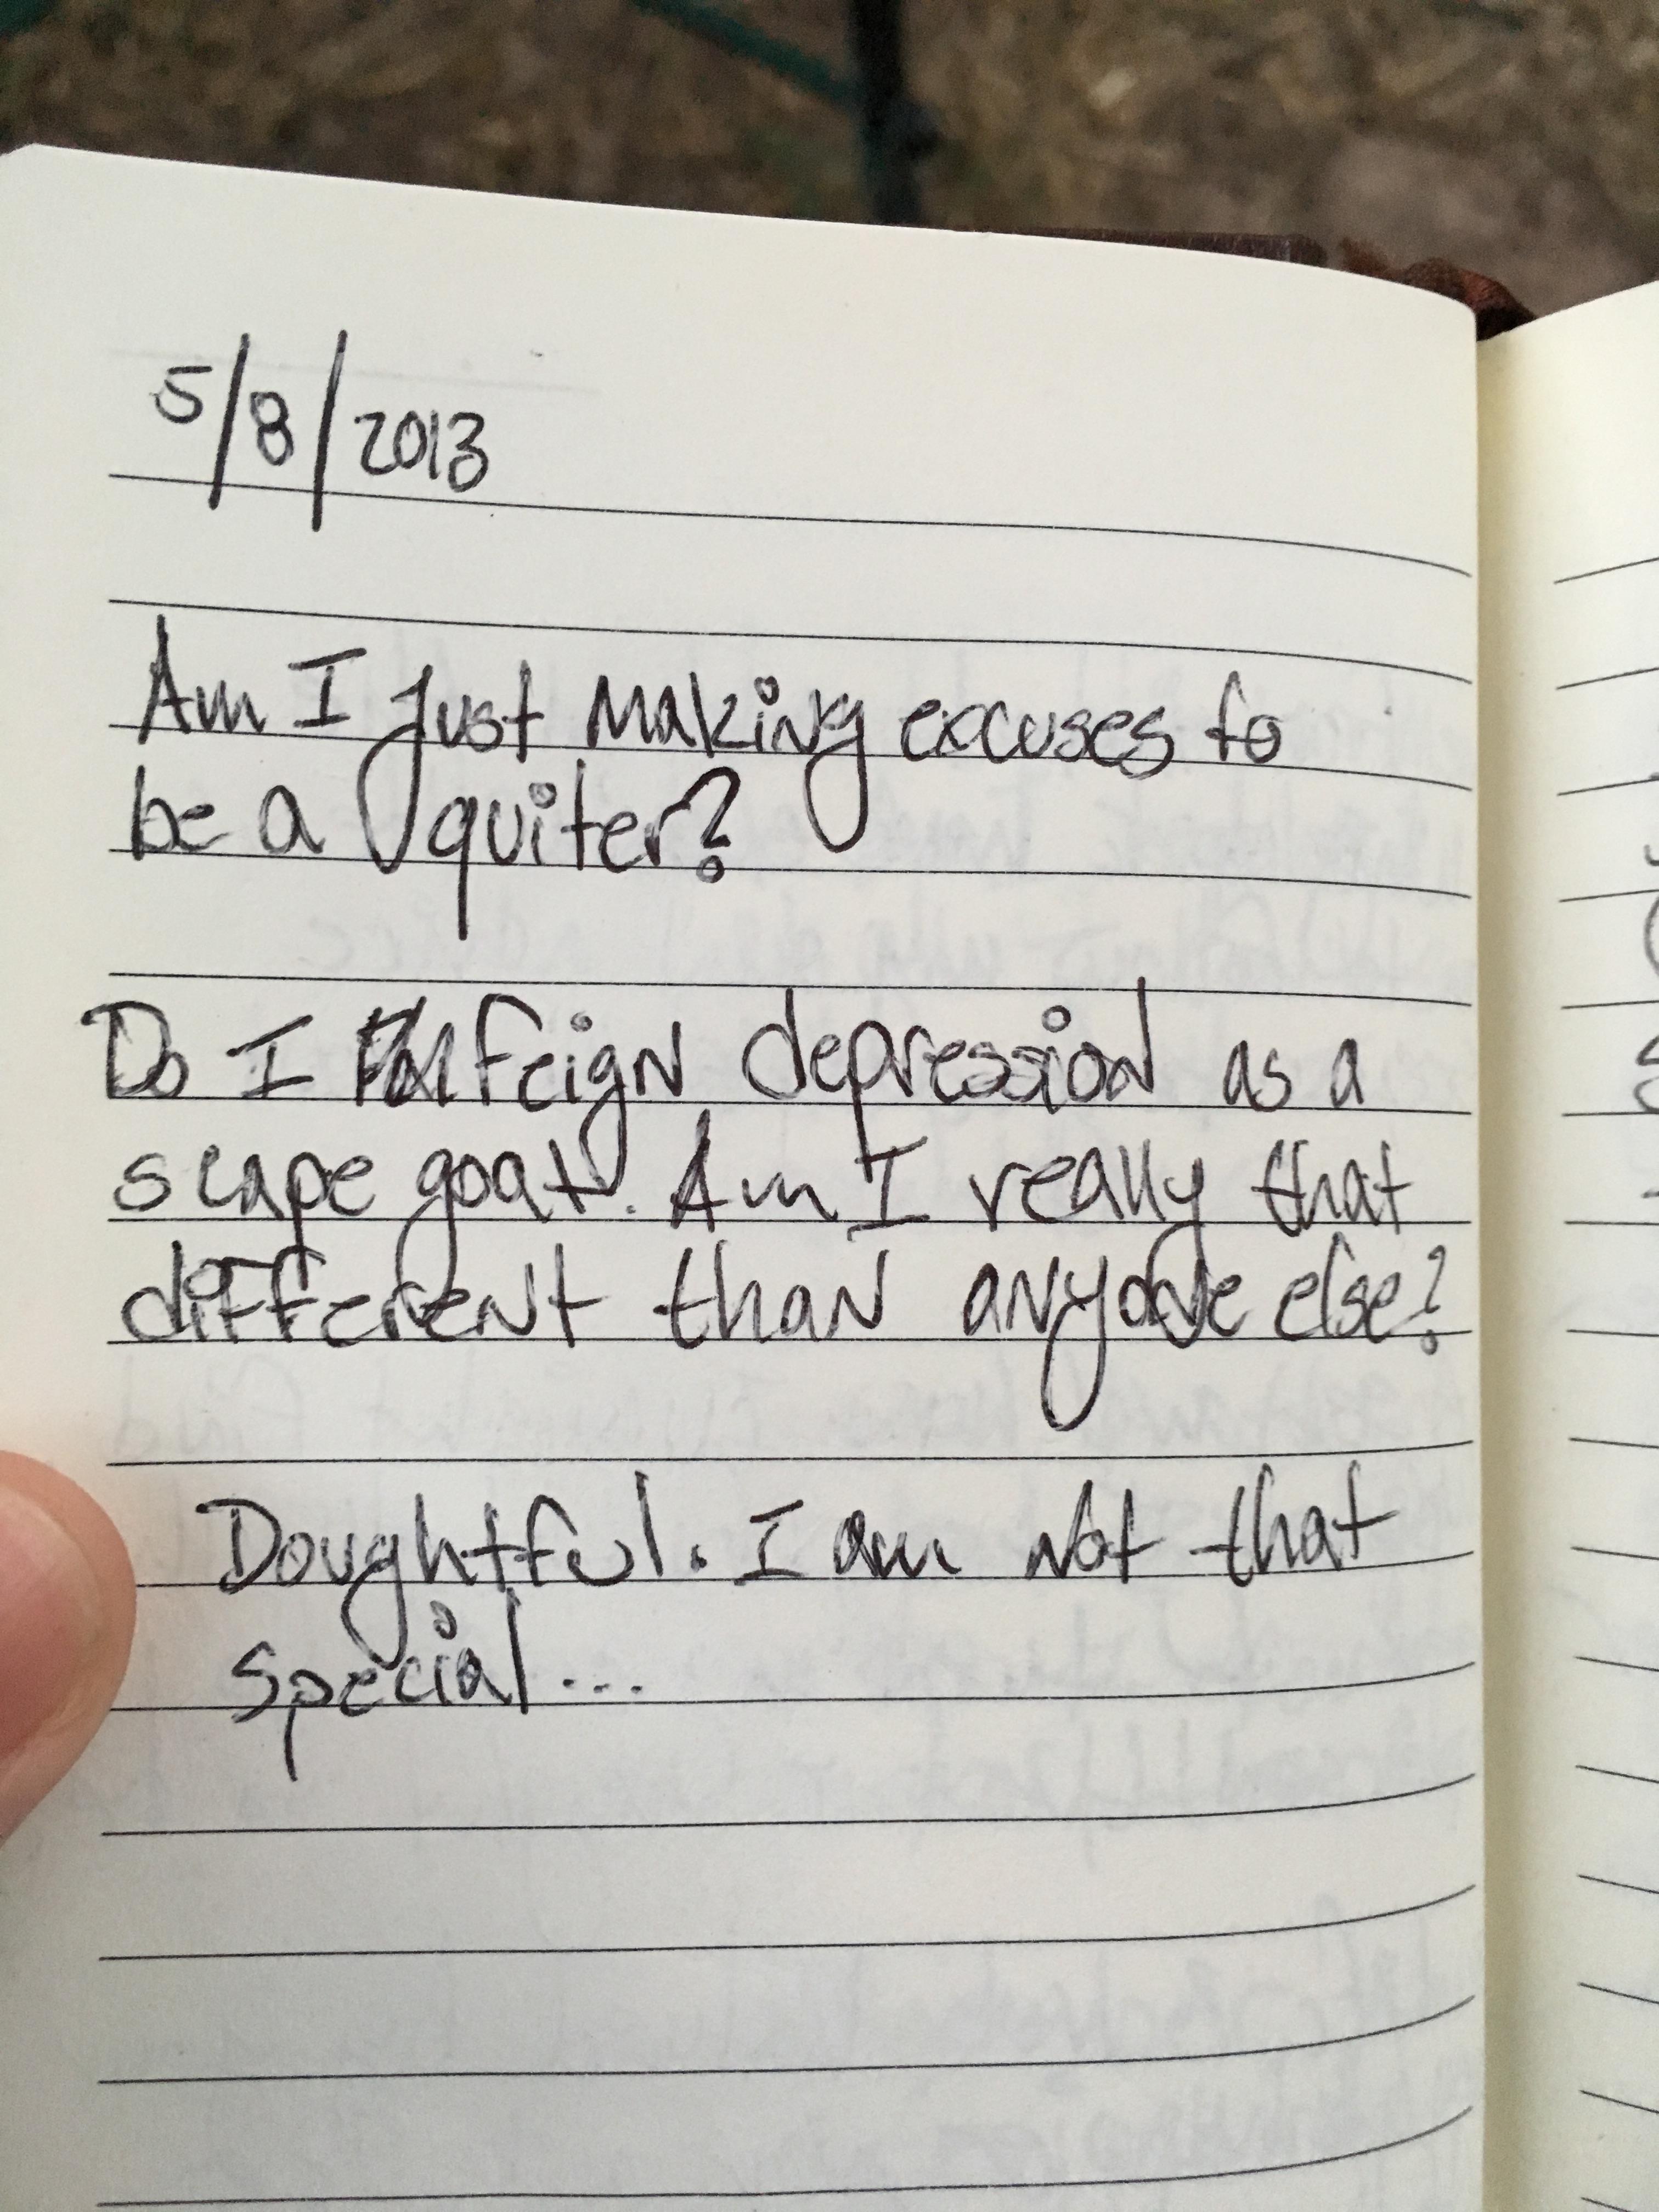 5/8/2013
Am I just making excuses to
be a quiter?
Do I feign depression as a
scape goat. Am I really that
different than anyone else?
Doughtful. I am not that
special...